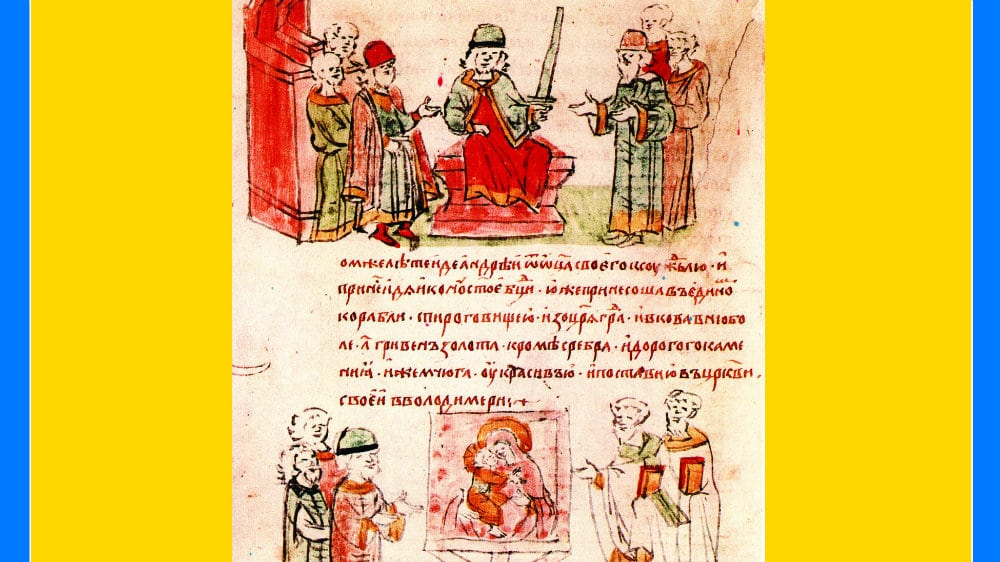 омжелѣтѣидеандрѣи ѿ ѿц҃а своегоксоуж҃ьлю · и
принеⷭ҇идѧиконоустоеб҃ци · юже принесоша въединоⷨ
корабли · спироговищею · изоцр҃ѧгра · ивкова внюбо
ле · л҃ гривенъ золота · кромѣ сребра · идорогогокаме
ниꙗ · ижемчюга · оукрасивъю · ипоставию въцр҃кви ·
своеи вволодимери